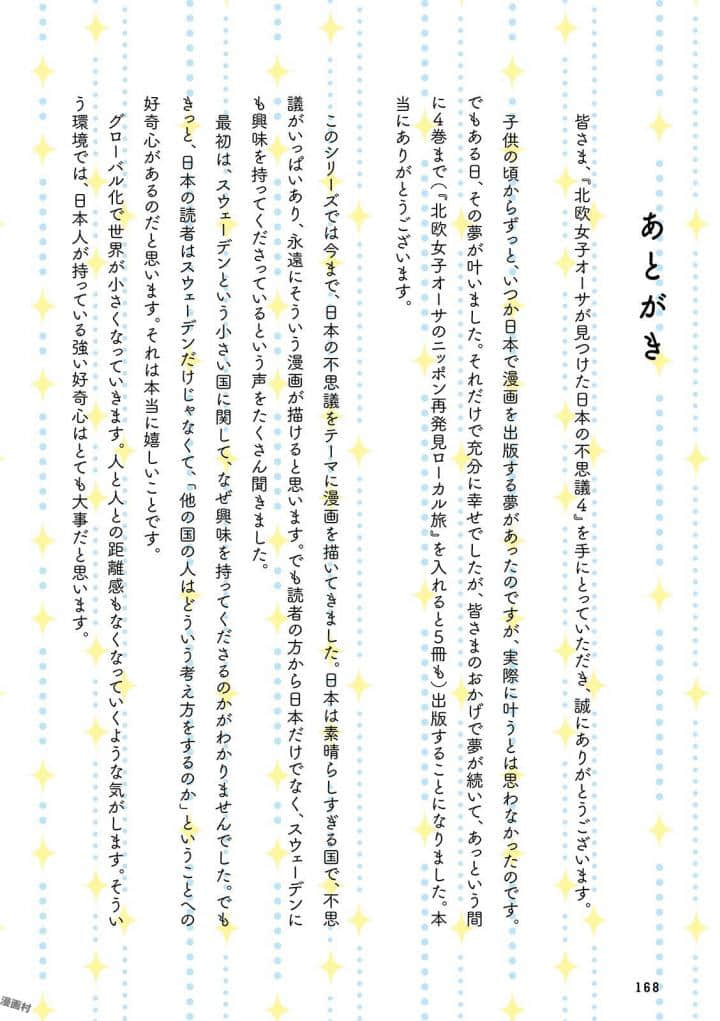 あとがき
皆さま、『北欧女子オーサが見つけた日本の不思議4』を手にとっていただき、誠にありがとうございます。
子供の頃からずっと、いつか日本で漫画を出版する夢があったのですが、実際に叶うとは思わなかったのです。
でもある日、その夢が叶いました。それだけで充分に幸せでしたが、皆さまのおかげで夢が続いて、あっという間
に4巻まで(『北欧女子オーサのニッポン再発見ローカル旅』を入れると5冊も)出版することになりました。本
当にありがとうございます。
このシリーズでは今まで、日本の不思議をテーマに漫画を描いてきました。日本は素晴らしすぎる国で、不思
議がいっぱいあり、永遠にそういう漫画が描けると思います。でも読者の方から日本だけでなく、スウェーデンに
も興味を持ってくださっているという声をたくさん聞きました。
最初は、スウェーデンという小さい国に関して、なぜ興味を持ってくださるのかがわかりませんでした。でも
きっと、日本の読者はスウェーデンだけじゃなくて、「他の国の人はどういう考え方をするのか」ということへの
好奇心があるのだと思います。それは本当に嬉しいことです。
グローバル化で世界が小さくなっていきます。人と人との距離感もなくなっていくような気がします。そうい
う環境では、日本人が持っている強い好奇心はとても大事だと思います。
168
漫画村